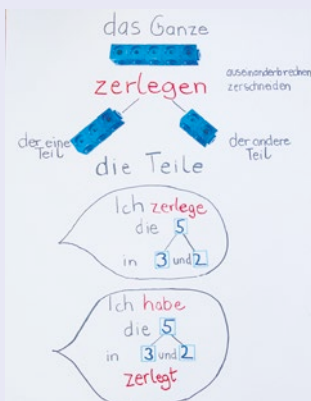 das Ganze
zerlegen
auseinanderbrechen
zerschneiden
der eine
Teil
der andere
Teil
die Teile
Ich zerlege
die 5
in 3 und 2
Ich habe
die 5
in 3 und 2
zerlegt